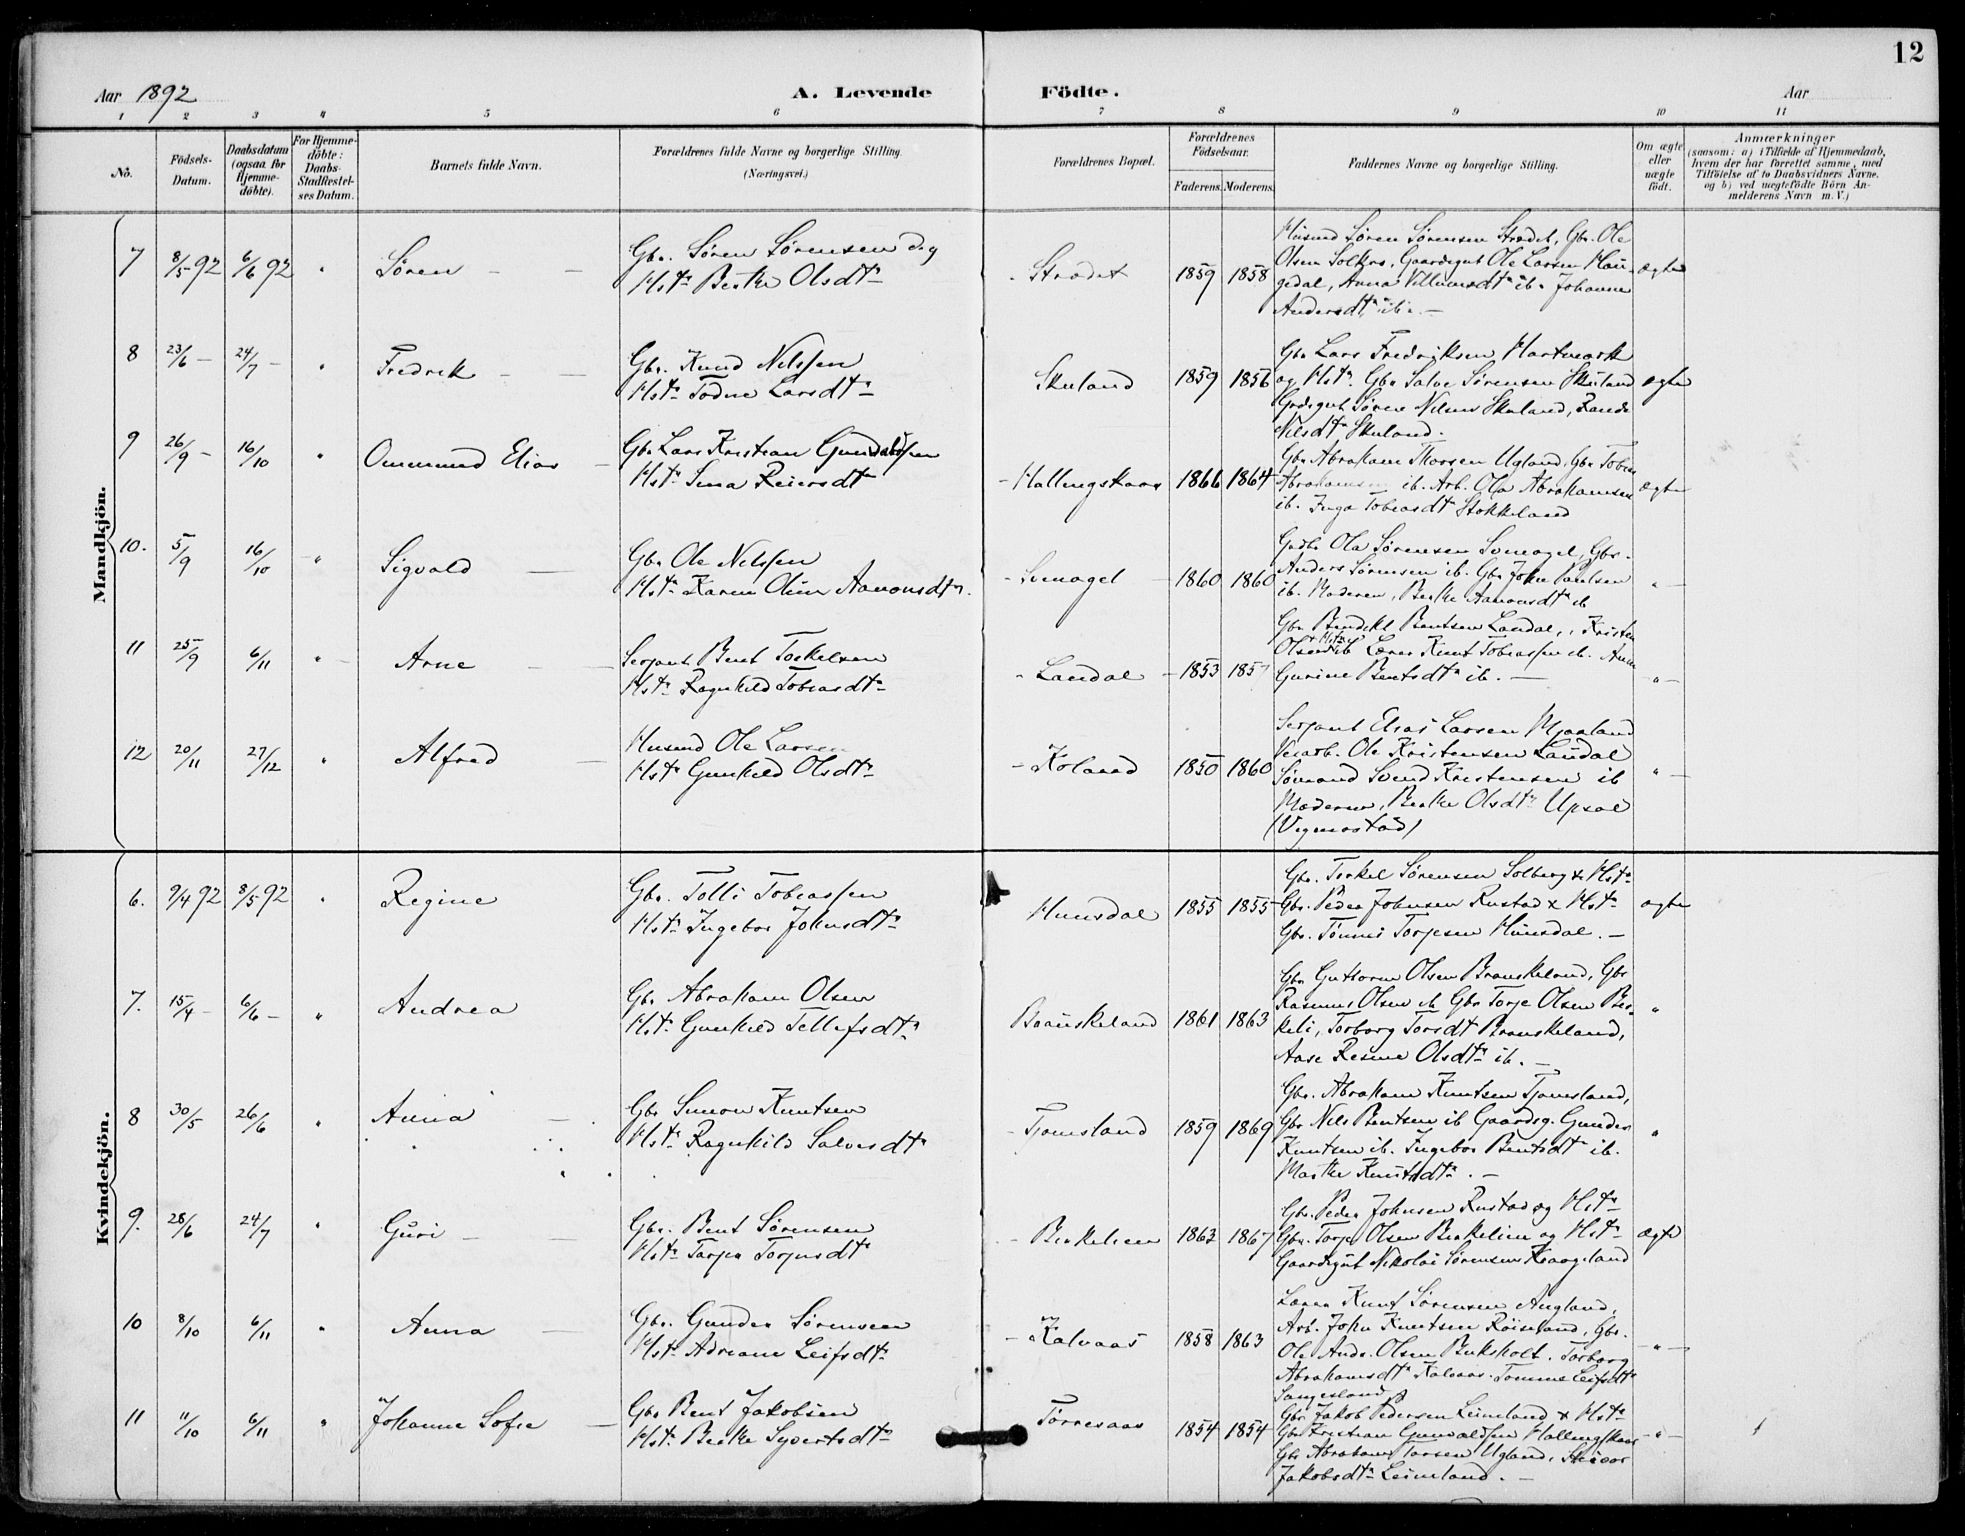 12
Aar 1892 A. Levende Födte. Aar
1 2 3 4 5 6 7 8 9 10 11
No.
Födsels-
Datum.
Daabsdatum
(ogsaa for
Hjemme-
döbte).
For Hjemme-
döbte:
Daabs-
Stadfæstel-
ses Datum.
Barnets fulde Navn.
Forældrenes fulde Navne og borgerlige Stilling.
(Næringsvei.)
Forældrenes Bopæl.
Forældrenes
Födselsaar.
Faderens. Moderens.
Faddernes Navne og borgerlige Stilling.
Om ægte
eller
uægte
födt.
Anmærkninger
(saasom: a) i Tilfælde af Hjemmedaab,
hvem der har forrettet samme, med
Tilföielse af to Daabsvidners Navne,
og b) ved uægtefödte Börn An-
melderens Navn m. V.)
Mandkjön.
7 8/5 92 6/6 92 " Søren — —
Gbr. Søren Sørensen og
Hst. Berthe Olsdtr
Strædet 1859 1858
Husmd Søren Sørensen Strædet, Gbr. Ole
Olsen Solkrs, Gaardsgut Ole Larsen Hau-
gedal, Anna Villumsdtr ib. Johanne
Andersdtr ib. —
ægte
8 23/6 — 24/7 — " Fredrik — —
Gbr. Knud Nilssen
Hst. Todne Larsdtr
Skuland 1859 1856
Gbr Lars Fredriksen Hartmark
og Hst. Gbr Salve Sørensen Skuland
Grdsgut Søren Nilsen Skuland, Rande
Nilsdtr Skuland.
ægte
9 26/9 — 16/10 " Ommund Elias —
Gbr Lars Kristian Gundvaldsen
Hst. Sina Reiersdtr
Hallingskaar 1866 1864
Gbr Abraham Thorsen Ugland, Gbr Tobias
Abrahamsen ib. Arb. Ola Abrahamsen
ib. Inga Tobiasdtr Stokkeland
ægte
10. 5/9 16/10 " Sigvald —
Gbr Ole Nilssen
Hst. Karen Oline Aanonsdtr.
Svinagel 1860 1860
Grdbr Ola Sørensen Svinagel, Gbr.
Anders Sørensen ib. Gbr John Paulsen
ib. Moderen, Berthe Aanonsdtr ib
" —
11 25/9 6/11 " Arne — —
Sergant Bent Torkelsen
Hst. Ragnhild Tobiasdtr
Landal 1853 185
Gbr Bendikt Bentsen Landal, Kristen
Olsen ib Lærer Knut Tobiassen ib. Anne
Gurine Bentsdtr ib. —
" —
12 20/11 27/12 " Alfred —
Husmd Ole Larsen
Hst. Gunhild Olsdtr
Kolaard 1850 1860
Sergant Elias Larsen Mjaaland
Veiarb. Ole Kristensen Landal
Sømand Svend Kristensen ib
Moderen, Berthe Olsdtr Upsal
(Vigmostad)
" —
Kvindekjön.
6. 9/4 92 8/5 92 " Regine
Gbr. Tolli Tobiassen
Hst. Ingebor Johnsdtr
Hunsdal 1855 1855
Gbr. Torkel Sørensen Solberg & Hst.
Gbr. Peder Johnsen Rustad & Hst.
Gbr. Tønnes Torjesen Hunsdal. —
ægte
7. 15/4 — 6/6 — " Andrea
Gbr Abraham Olsen
Hst. Gunhild Tellefsdtr.
Brauskeland 1861 1863
Gbr Guttorm Olsen Brauskeland, Gbr
Rasmus Olsen ib Gbr Torje Olsen Bir-
keli, Torborg Torsdtr Brauskeland,
Aase Resine Olsdtr ib. —
"
8 30/5 26/6 " Anna —
Gbr Simon Knutsen
Hst. Ragnhild Salvesdtr
Tjomsland 1859 1869
Gbr. Abraham Knutsen Tjomsland,
Gbr Nils Bentsen ib Gaardsg. Gunder
Knutsen ib. Ingebor Bentsdtr ib.
Marthe Knutsdtr. —
"
9. 28/6 24/7 " Guri — —
Gbr. Bent Sørensen
Hst. Torjer Torjusdtr
Birkelien 1863 1867
Gbr. Peder Johnsen Rustad og Hst.
Gbr. Torje Olsen Birkelien og Hst.
Gaardsgut Nikolai Sørensen Kraageland
ægte
10 8/10 6/11 " Anna —
Gbr. Gunder Sørensen
Hst. Adriane Leifsdtr
Kalvaas 1858 1863
Lærer Knut Sørensen Augland,
Arb. John Knutsen Röiseland, Gbr.
Ole Andr. Olsen Birkholt. Torborg
Abrahamsdtr Kalvaas. Tomme Leifsdtr
" —
11 11/10 6/11 " Johanne Sofie —
Gbr Bent Jakobsen
Hst. Berthe Syvertsdtr
Torresaas 1854 1854
Gbr Jakob Pedersen Leineland & Hst.
Gbr Kristian Gunvaldsen Hallingskaar
Gbr Abraham Torsen Ugland, Skivor
Jakobsdtr Leineland. —
" —